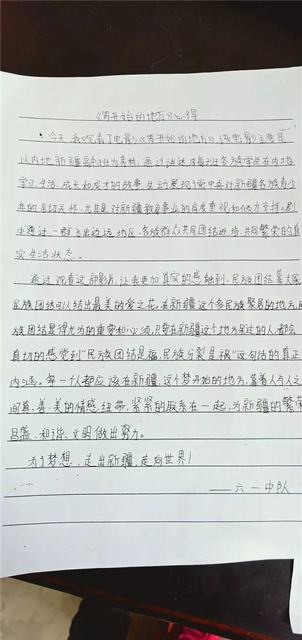 《梦开始的地方》心得
今天我观看了电影《梦开始的地方》该电影主要是
以内地新疆高中班为素材，通过讲述内高班各族学生在内地
学习、生活、成长和成才的故事，生动展现了党中央对新疆各族青少
年的亲切关怀，尤其是对新疆教育事业的高度重视和倾力支持。剧
中通过一群飞出边远地区，各族群众共同团结进步，共同繁荣的真
实生活状态。
通过观看这部影片，让我更加真实的感触到，民族团结是大家
民族团结可以结出最美的爱之花，在新疆这个多民族聚居的地方，民
族团结显得尤为的重要和必须，只要在新疆这个地方呆过的人都会
真切的感觉到“民族团结是福，民族分裂是祸”这句话的真正
内涵。每一个人都应该在新疆，这个梦开始的地方，靠着人与人之
间真、善、美的情感纽带，紧紧的联系在一起，为新疆的繁荣
昌盛、和谐、文明做出努力。
为了梦想，走出新疆，走向世界！
——六一中队